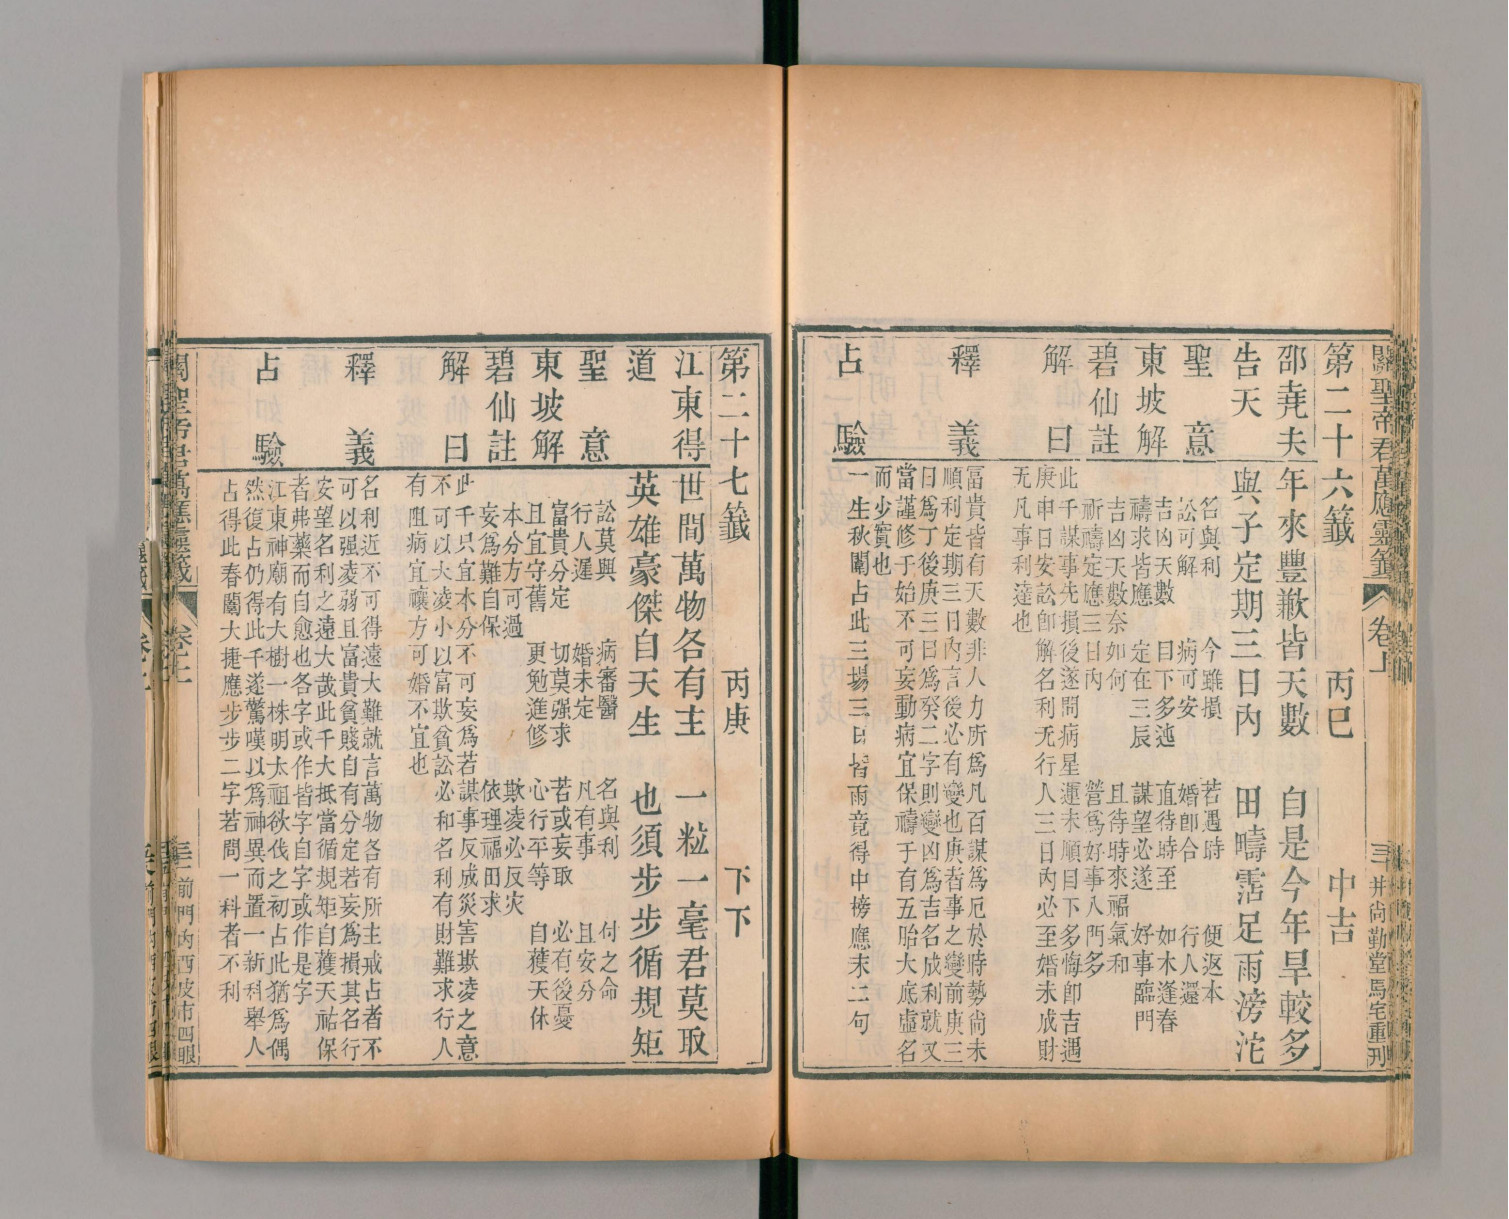 關聖帝君萬應靈籤 卷上 三 井尚勤堂馬宅重刊
第二十六籤 丙巳 中吉
邵堯夫 年來豐歉皆天數 自是今年旱較多
告天 與子定期三日內 田疇霑足雨滂沱
聖意 名與利 今雖損 若遇時 便返本
訟可解 病可安 婚即合 行人還
東坡解 吉凶天數 目下多迍 直待時至 如木逢春
禱求皆應 定在三辰 謀望必遂 好事臨門
碧仙註 吉凶天數奈如何 且待時來福氣和
祈禱定應三日內 營爲好事入門多
解曰 此千謀事先損後遂問病星運未順目下多悔卽吉遇
庚申日安訟卽解名利无行人三日內必至婚未成財
无凡事利達也
釋義 富貴皆有天數非人力所爲凡百謀爲厄於時勢尚未
順利定期三日內言後必有變也庚者事之變前庚三
日爲丁後庚三日爲癸二字則變凶爲吉名成利就又
當謹修于始不可妄動病宜保禱于有五胎大底虛名
而少實也
占驗 一生秋闈占此三場三日皆雨竟得中榜應末二句
第二十七籤 丙庚 下下
江東得 世間萬物各有主 一粒一毫君莫取
道 英雄豪傑自天生 也須步步循規矩
聖意 訟莫興 病審醫 名與利 付之命
行人遲 婚未定 凡有事 且安分
東坡解 富貴分定 切莫强求 若或妄取 必有後憂
且宜守舊 更勉進修 心行平等 自獲天休
碧仙註 本分方可過 欺凌必反灾
妄爲難自保 依理福田求
解曰 此千只宜本分不可妄爲若謀事反成災害欺凌之意
不可以大凌小以富欺貧訟必和名利有財難求行人
有阻病宜禳方可婚不宜也
釋義 名利近不可得遠大難就言萬物各有所主戒占者不
可以强凌弱且富貴貧賤自有分定若妄爲損其名行
安望名利之遠大哉此千大抵當循規矩自獲天祐保
者弗藥而自愈也各字或作皆字自字或作是字
占驗 江東神廟有大樹一株明太祖欲伐之初占此猶爲偶
然復占仍得此千遂驚嘆以爲神異而置一新科舉人
占得此春闈大捷應步步二字若問一科者不利
關聖帝君萬應靈籤 卷上 三 前門內西皮市四眼